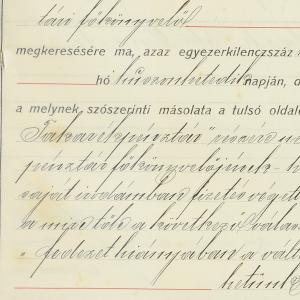 tári főkönyvelő
megkeresésére ma, azaz egyezerkilenczszáz
hó huszonhetedik napján, d
a melynek szószerinti másolata a tulsó oldal
Takarékpénztár" részére
pénztár főkönyvelőjének
saját irodámban fizetés végett
a mire tőle a következő válasz
„ fedezet hiányában a vált
hetünk